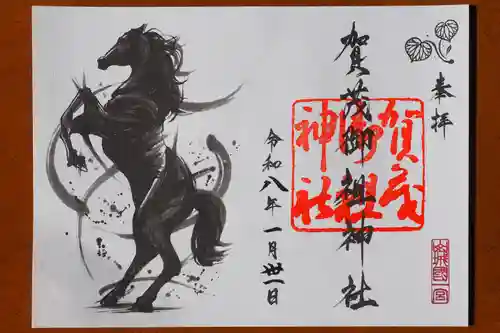 奉拝
賀茂御祖神社
賀茂
御祖
神社
令和八年一月卅一日
山城國
一宮